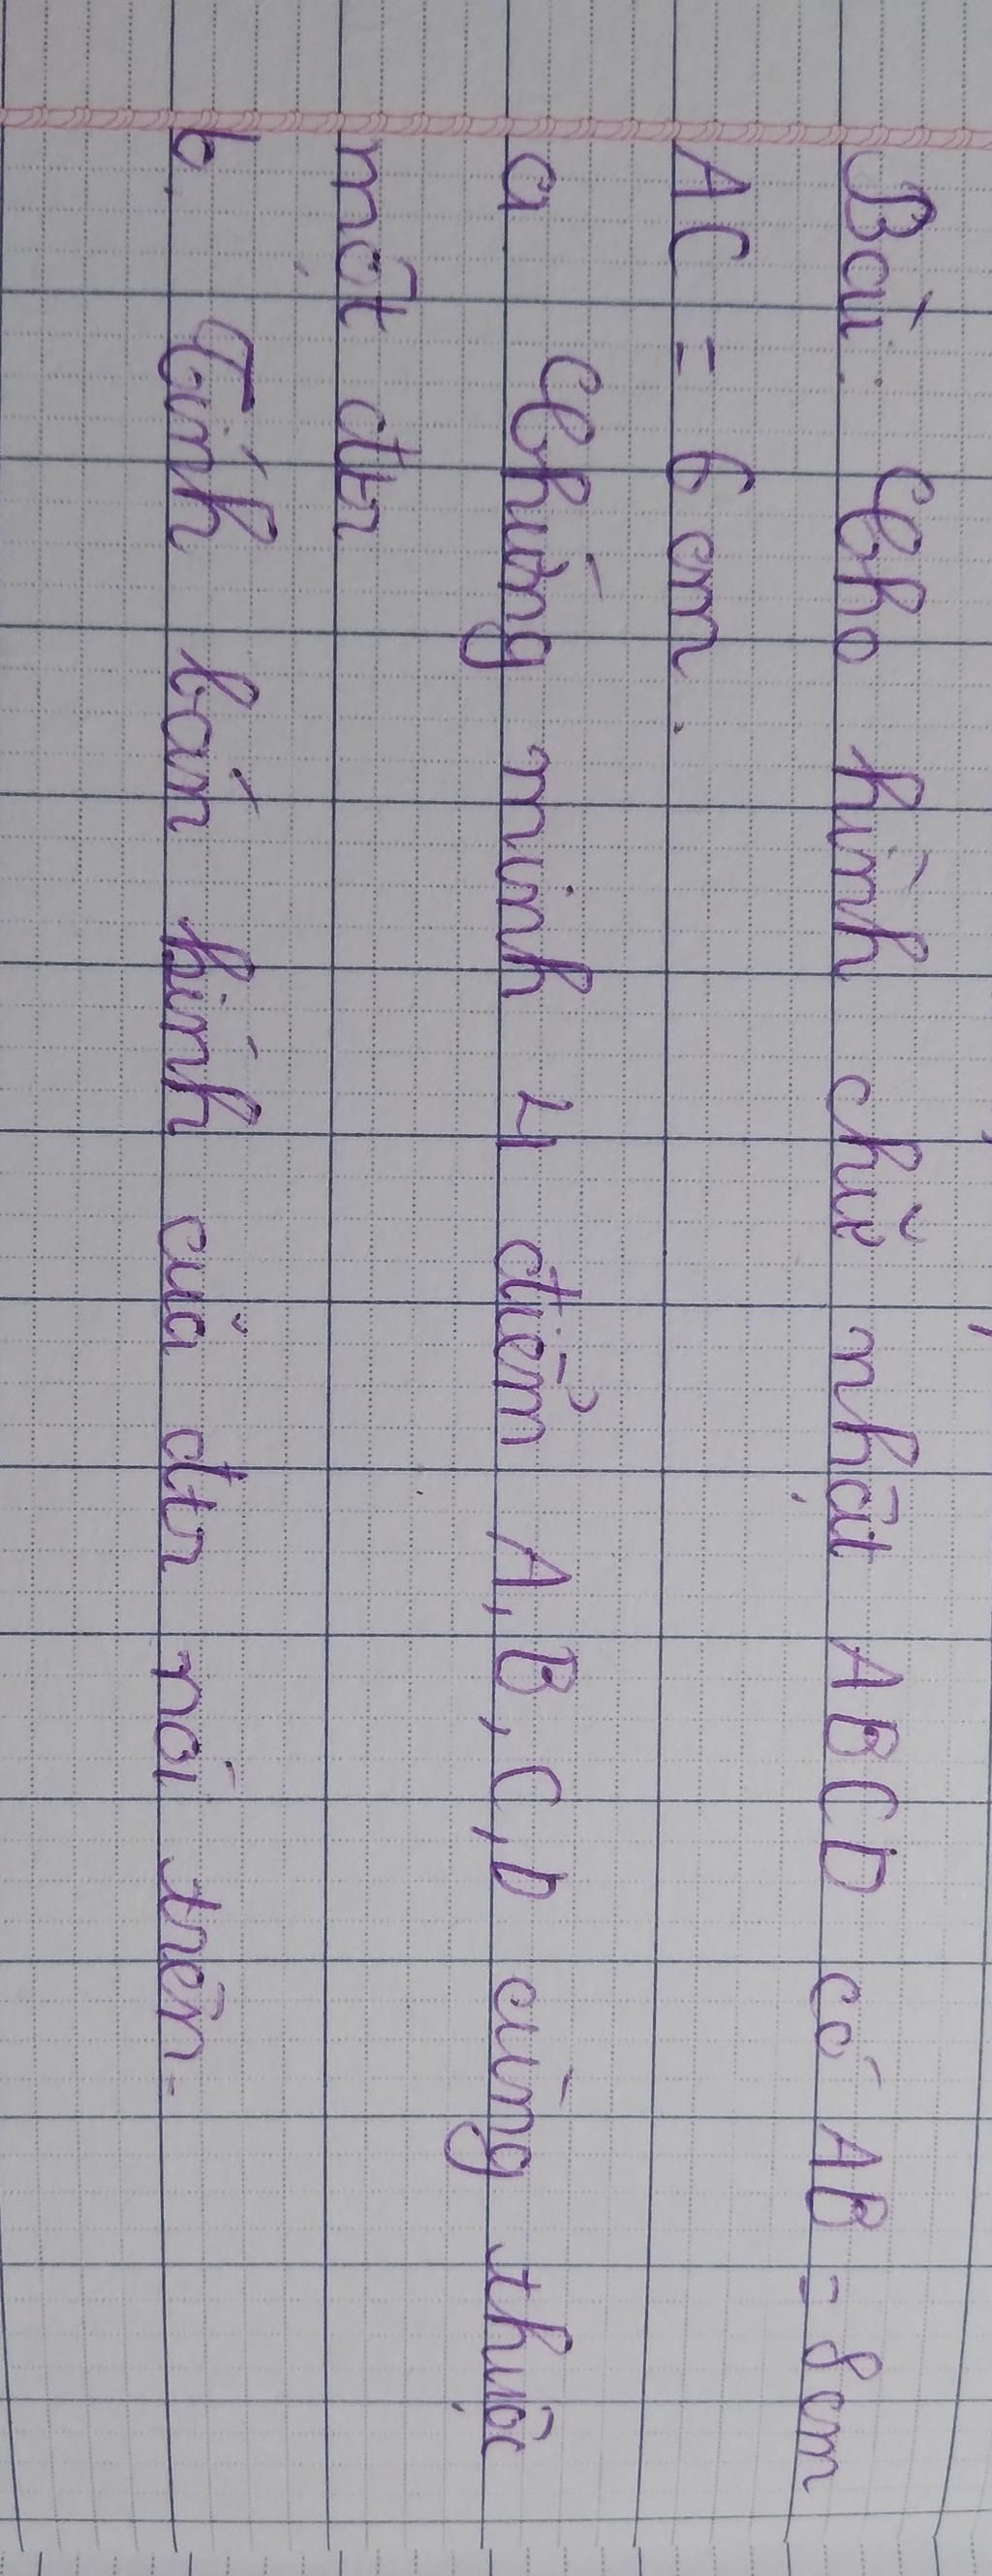 Bài: Cho hình chữ nhật ABCD có AB = 8cm
AC = 6cm.
a. Chứng minh 4 điểm A, B, C, D cùng thuộc
một đtr
b. Tính bán kính của đtr nói trên.